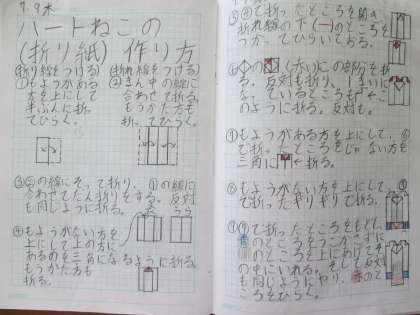 7.9木
ハートねこの
(折り紙)作り方
(折り線をつける)
①もようがある
方を上にして
半ぶんに折っ
てひらく。
(折れ線をつける)
②まん中の線に
合わせて折る。
もうかた方も
折ってひらく。
③②の線にそって折り、①の線に
合わせてだん折りをする。反対
も同じように折る。
うら
④もようがない方を
上にして上の方に
あるのを三角になるように折る。
もうかた方も
折る。
⑤④で折ったところを開き、
折れ線の下(一)のところを
つかってひらいておる。
(赤い)この部分を折
る。反対も折り、下がまいに
なっているところも
のように折る。反対も。
⑦もようがある方を上にして、
で折ったところをじゃない方も
三角に折る。
⑧もようがない方を上にして、
で折ったギリギリで折る。
⑨で折ったところをもどし、
のところをうごかさずに
のところを上にあげて
の中にいれる。そして反対
も同じようにやり、赤のと
ころをひらく。